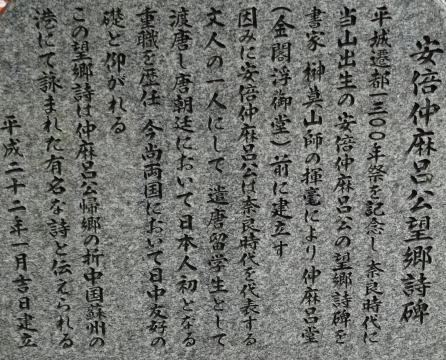 安倍仲麻呂公望郷詩碑
平城遷都一三〇〇年祭を記念し 奈良時代に
当山出生の安倍仲麻呂公の望郷詩碑を
書家 榊莫山師の揮毫により仲麻呂堂
(金閣浮御堂)前に建立す
因みに安倍仲麻呂公は奈良時代を代表する
文人の一人にして 遣唐留学生として
渡唐し唐朝廷において日本人初となる
重職を歴任 今尚両国において日中友好の
礎と仰がれる
この望郷詩は仲麻呂公帰郷の折中国蘇州の
港にて詠まれた有名な詩と伝えられる
平成二十二年一月吉日建立